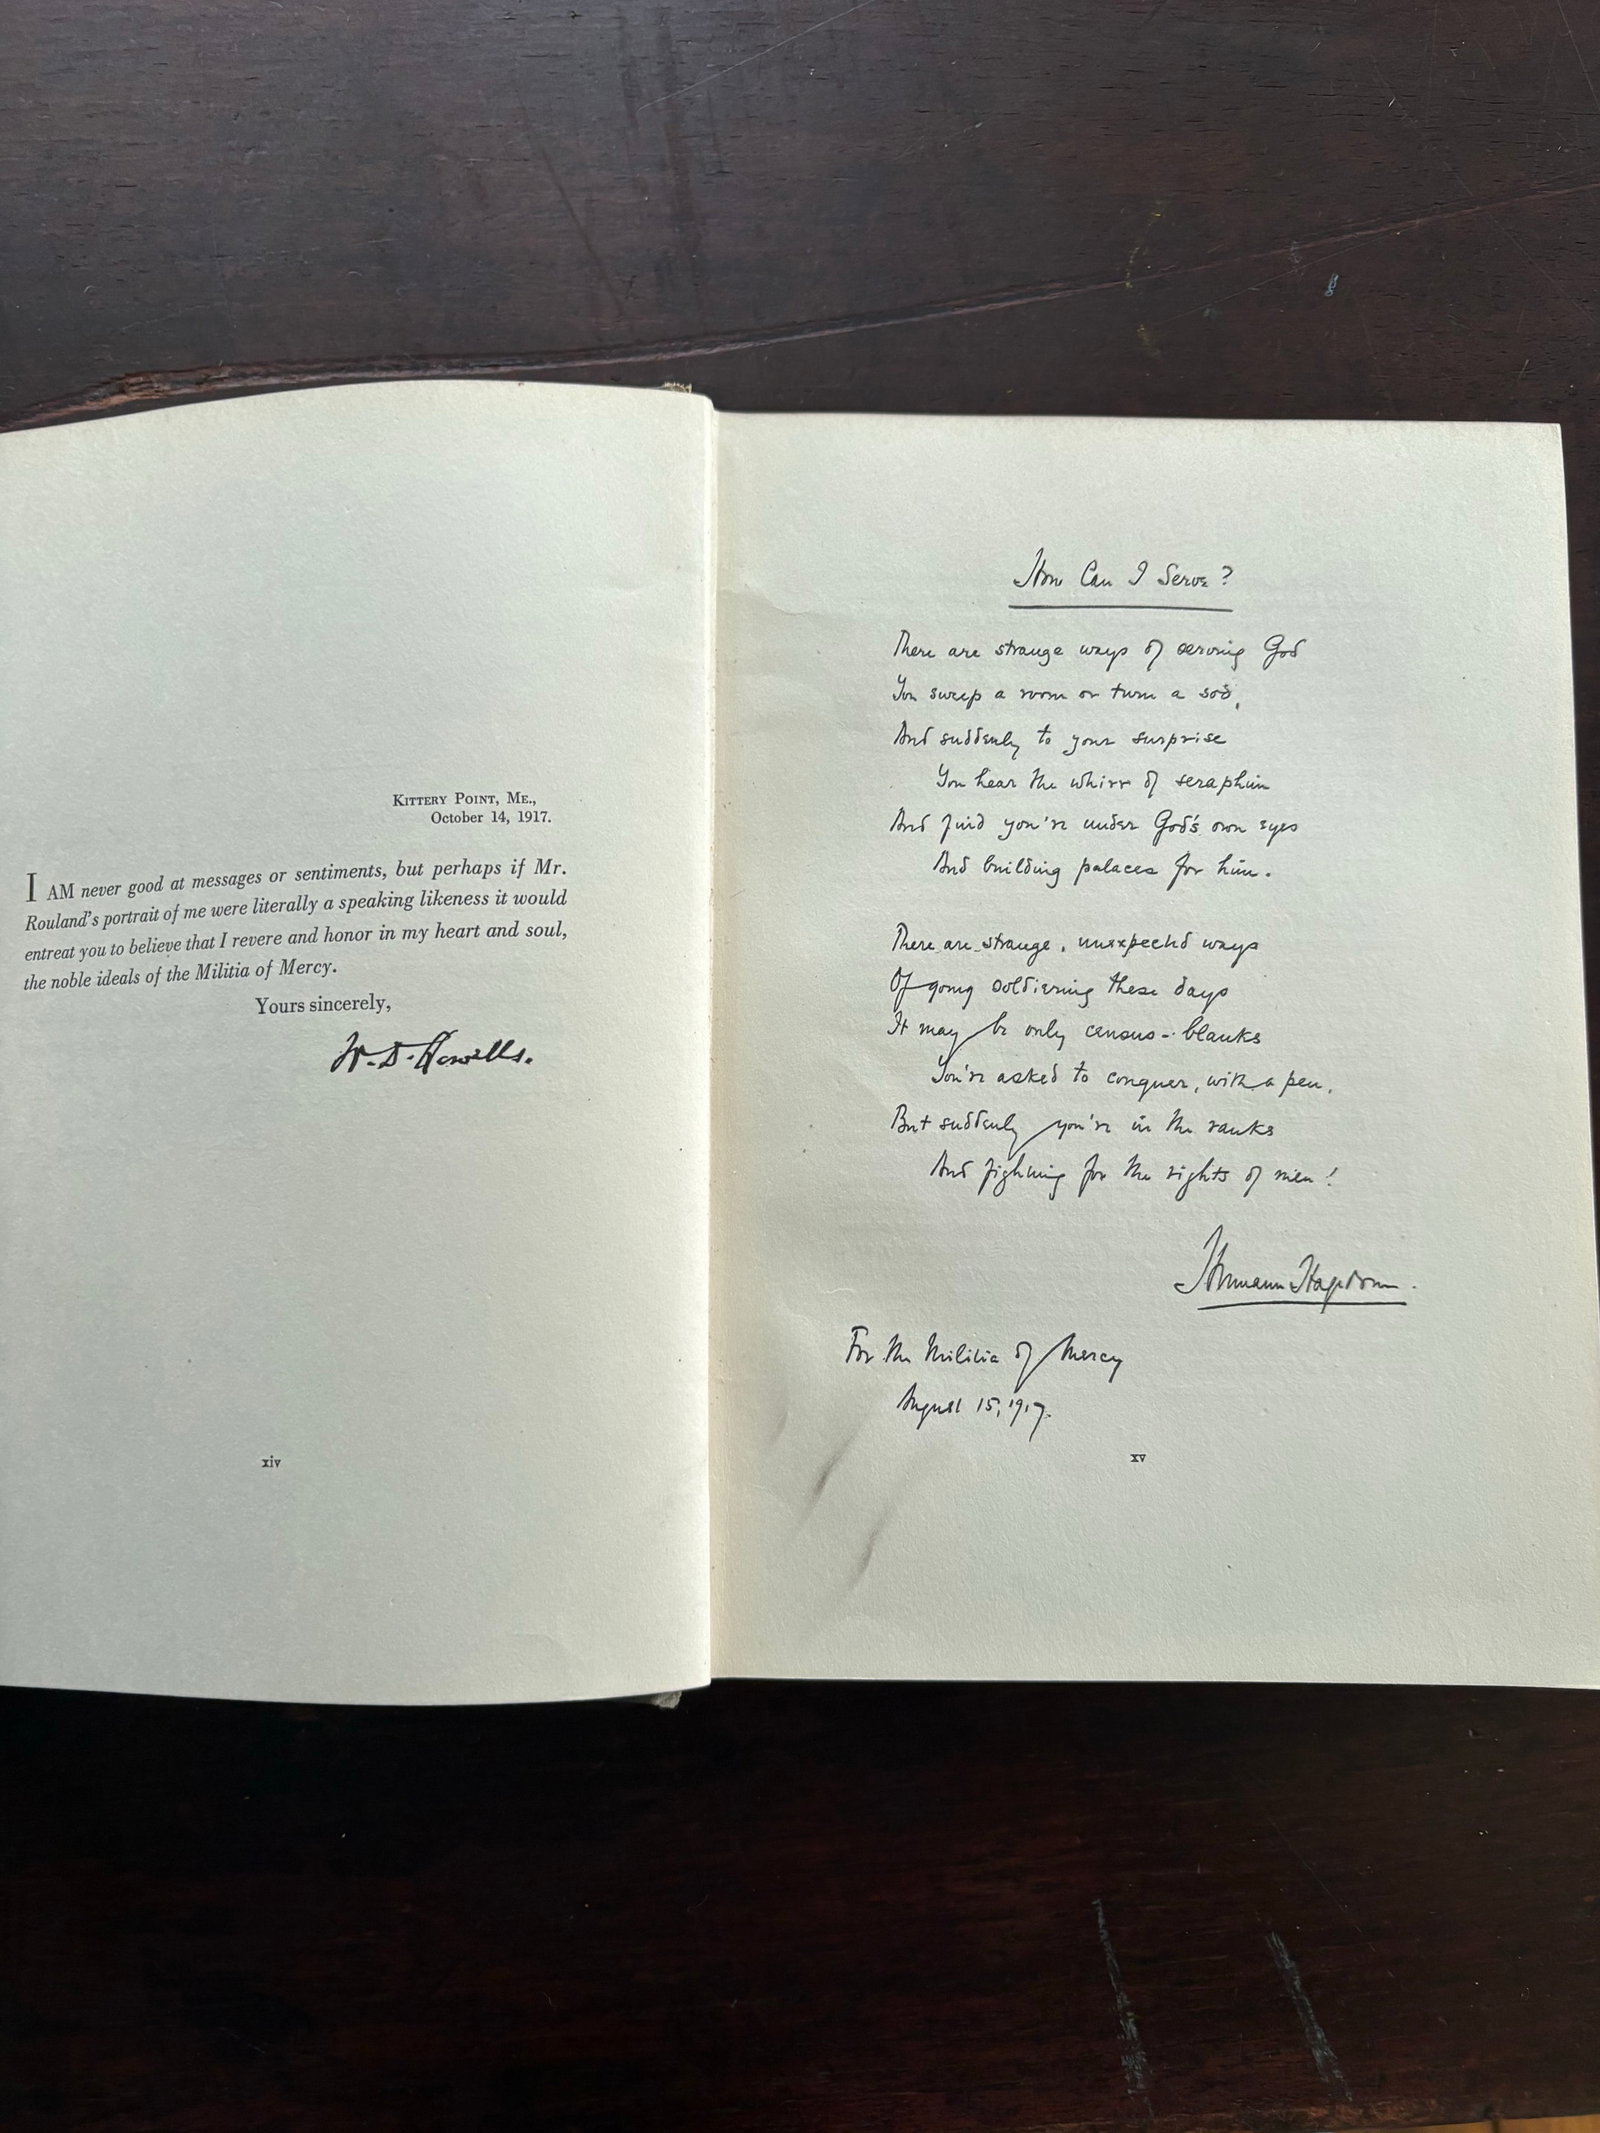 KITTERY POINT, ME.,
October 14, 1917.
I AM never good at messages or sentiments, but perhaps if Mr.
Rouland's portrait of me were literally a speaking likeness it would
entreat you to believe that I revere and honor in my heart and soul,
the noble ideals of the Militia of Mercy.
Yours sincerely,
W. D. Howells.
xiv
How Can I Serve?
There are strange ways of serving God
You sweep a room or turn a sod,
And suddenly to your surprise
You hear the whirr of seraphim
And find you're under God's own eyes
And building palaces for him.
There are strange, unexpected ways
Of going soldiering these days
It may be only census-blanks
You're asked to conquer, with a pen,
But suddenly you're in the ranks
And fighting for the rights of men!
Hermann Hagedorn.
For the Militia of Mercy
August 15, 1917.
xv